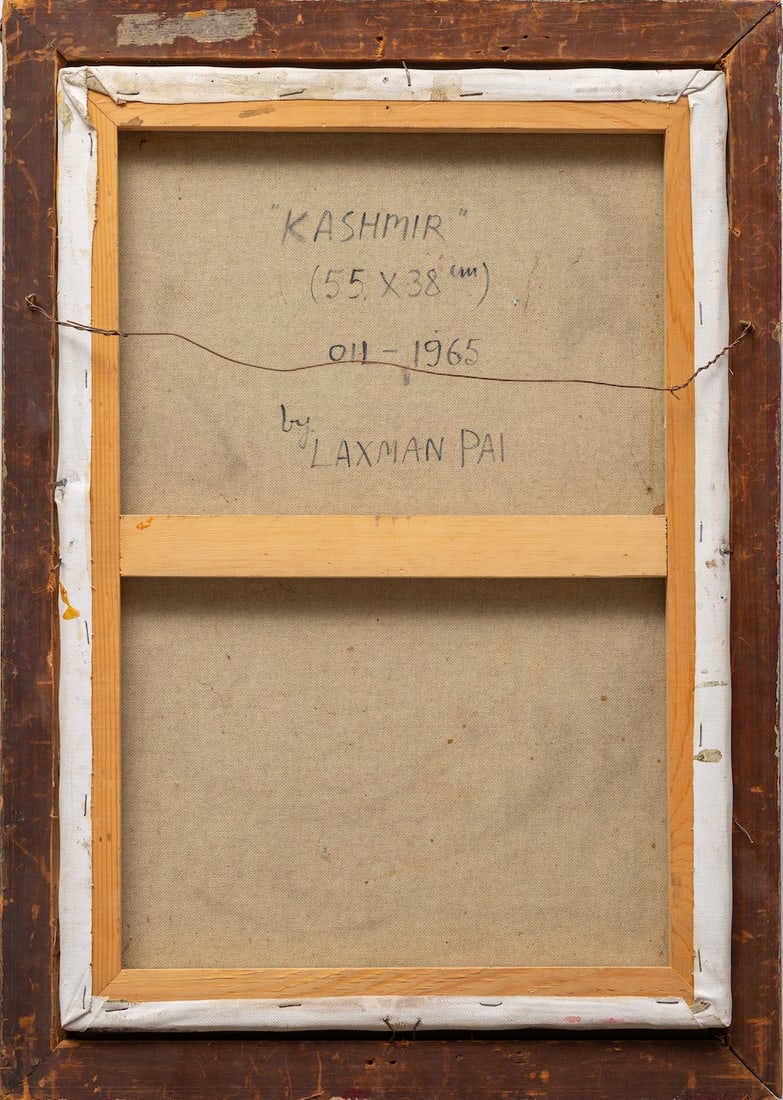 "KASHMIR"
(55 X 38 cm)
OIL - 1965
by
LAXMAN PAI